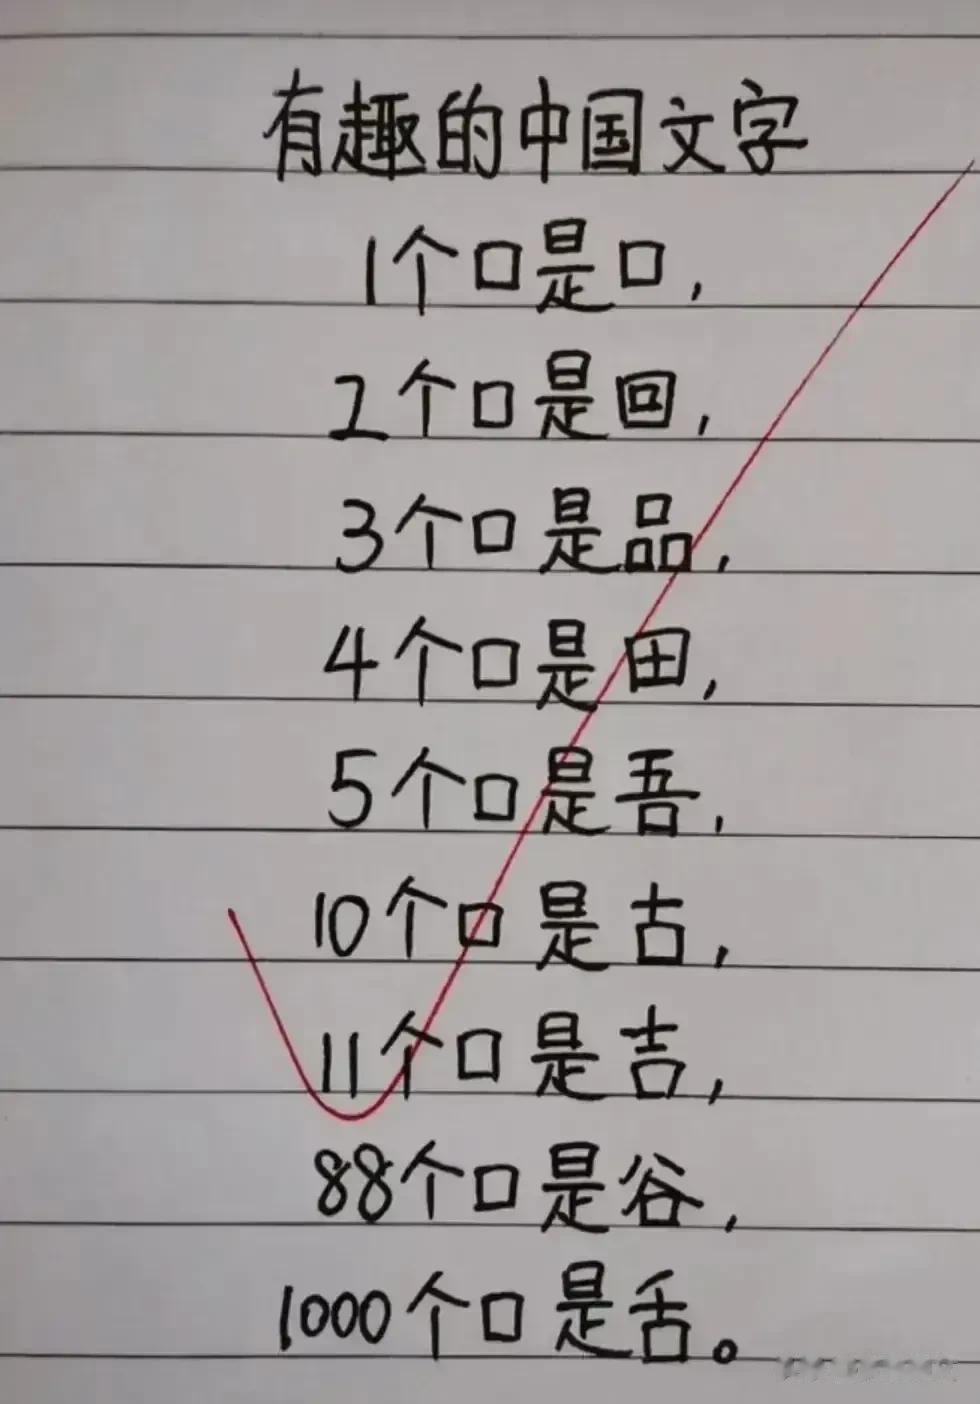 有趣的中国文字
1个口是口，
2个口是回，
3个口是品，
4个口是田，
5个口是吾，
10个口是古，
11个口是吉，
88个口是谷，
1000个口是舌。